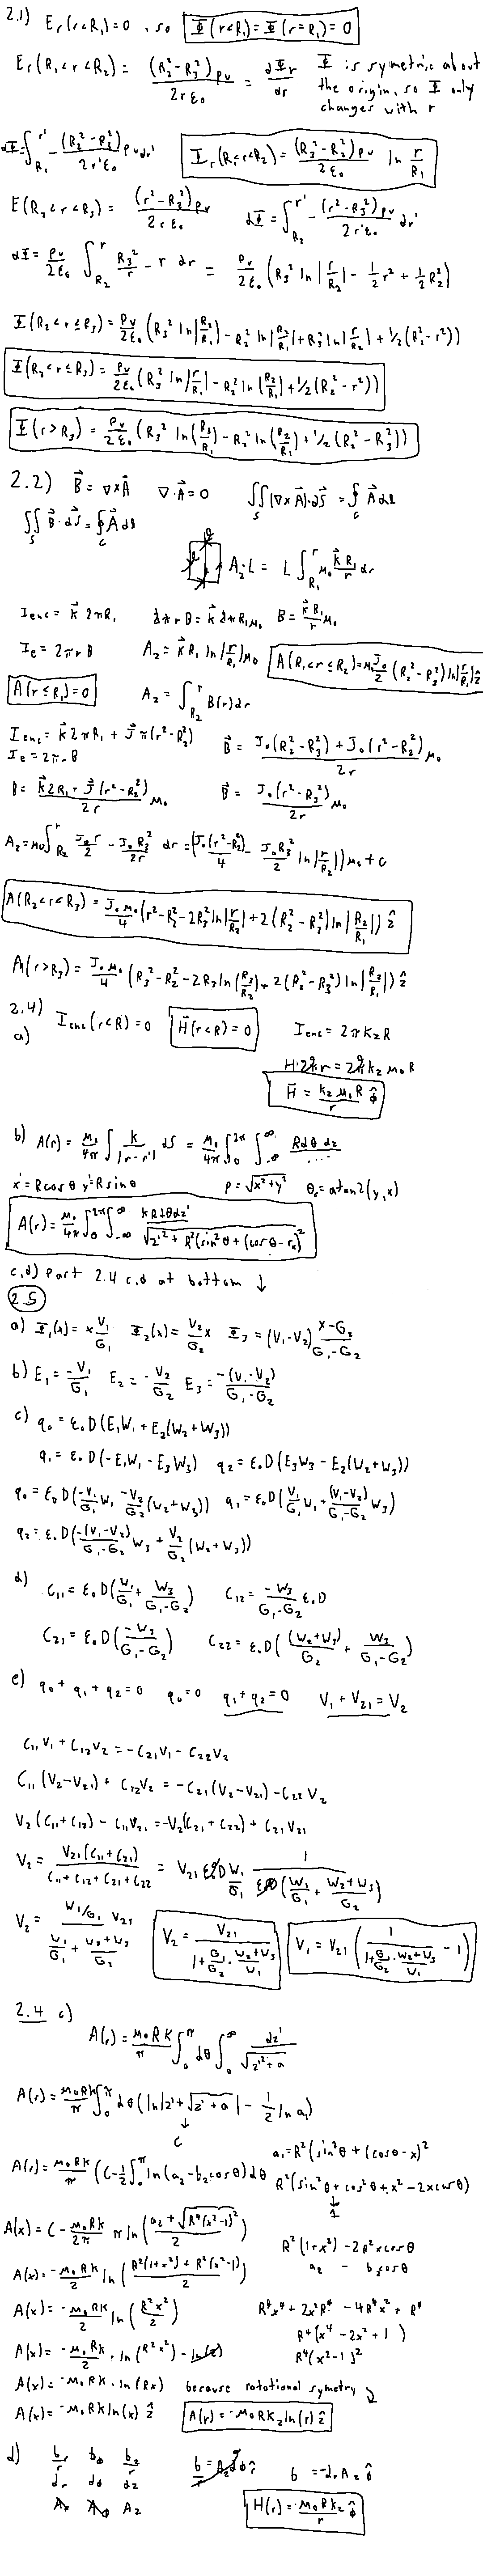 2.1) E_r(r<R_1)=0 , so Φ(r<R_1)=Φ(r=R_1)=0
E_r(R_1<r<R_2) = (R_2^2-R_3^2)ρ_v / 2rε_0 = dΦ_r/dr Φ is symetric about
the origin, so Φ only
changes with r
dΦ=∫_{R_1}^{r'} -(R_2^2-R_3^2)/2r'ε_0 ρ_v dr' Φ_r(R_1<r<R_2) = (R_3^2-R_2^2)ρ_v/2ε_0 ln r/R_1
E(R_2<r<R_3) = (r^2-R_3^2)ρ_v/2rε_0 dΦ=∫_{R_2}^{r'} -(r'^2-R_3^2)ρ_v/2r'ε_0 dr'
dΦ= ρ_v/2ε_0 ∫_{R_2}^{r} R_3^2/r - r dr = ρ_v/2ε_0 (R_3^2 ln|r/R_2| - 1/2 r^2 + 1/2 R_2^2)
Φ(R_2<r≤R_3)= ρ_v/2ε_0 (R_3^2 ln|R_2/R_1| - R_2^2 ln|R_2/R_1| + R_3^2 ln|r/R_2| + 1/2(R_2^2-r^2))
Φ(R_2<r≤R_3)= ρ_v/2ε_0 (R_3^2 ln|r/R_1| - R_2^2 ln(R_2/R_1) + 1/2(R_2^2-r^2))
Φ(r>R_3) = ρ_v/2ε_0 (R_3^2 ln(R_3/R_1) - R_2^2 ln(R_2/R_1) + 1/2(R_2^2-R_3^2))
2.2) B⃗ = ∇×A⃗ ∇·A⃗=0 ∫∫_S (∇×A⃗)·dS = ∮_C A⃗ dl
∫∫_S B⃗·dS = ∮_C A⃗ dl
A_z·L = L∫_{R_1}^{r} μ_0 k⃗R_1/r dr
I_enc = k⃗ 2πR_1 2πr B = k⃗ 2πR_1 μ_0 B = k⃗R_1/r μ_0
I_e = 2πrB A_z = k⃗R_1 ln|r/R_1|μ_0 A(R_1<r≤R_2)=μ_0 J_0/2 (R_2^2-R_3^2)ln|r/R_1|ẑ
A(r≤R_1)=0 A_z = ∫_{R_2}^{r} B(r)dr
I_enc = k⃗2πR_1 + J⃗π(r^2-R_2^2) B⃗ = J_0(R_2^2-R_3^2)+J_0(r^2-R_2^2) / 2r μ_0
I_e = 2πrB
B = k⃗2R_1+J⃗(r^2-R_2^2) / 2r μ_0 B⃗ = J_0(r^2-R_3^2)/2r μ_0
A_z=μ_0∫_{R_2}^{r} J_0r/2 - J_0R_3^2/2r dr = (J_0(r^2-R_2^2)/4 - J_0R_3^2/2 ln|r/R_2|)μ_0 + c
A(R_2<r<R_3) = J_0μ_0/4 (r^2-R_2^2-2R_3^2ln|r/R_2|+2(R_2^2-R_3^2)ln|R_2/R_1|) ẑ
A(r>R_3) = J_0μ_0/4 (R_3^2-R_2^2-2R_3ln(R_3/R_2)+2(R_2^2-R_3^2)ln|R_2/R_1|) ẑ
2.4)
a) I_enc(r<R)=0 H⃗(r<R)=0 I_enc = 2πk_zR
H·2πr = 2πk_zμ_0R
H⃗ = k_zμ_0R/r φ̂
b) A(r) = μ_0/4π ∫ k/|r-r'| dS = μ_0/4π ∫_0^{2π} ∫_{-∞}^{∞} Rdθdz/....
x'=Rcosθ y'=Rsinθ ρ=√(x^2+y^2) θ_0=atan2(y,x)
A(r) = μ_0/4π ∫_0^{2π} ∫_{-∞}^{∞} kRdθdz' / √(z'^2+R^2(sin^2θ+(cosθ-r_x)^2
c,d) Part 2.4 c,d at bottom ↓
2.5
a) Φ_1(x) = x V_1/G_1 Φ_2(x) = V_2/G_2 x Φ_3 = (V_1-V_2) x-G_2/G_1-G_2
b) E_1 = -V_1/G_1 E_2 = -V_2/G_2 E_3 = -(V_1-V_2)/G_1-G_2
c) q_0 = ε_0D(E_1W_1+E_2(W_2+W_3))
q_1 = ε_0D(-E_1W_1-E_3W_3) q_2 = ε_0D(E_3W_3-E_2(W_2+W_3))
q_0 = ε_0D(-V_1/G_1 W_1 -V_2/G_2(W_2+W_3)) q_1 = ε_0D(V_1/G_1 W_1 + (V_1-V_2)/G_1-G_2 W_3)
q_2 = ε_0D(-(V_1-V_2)/G_1-G_2 W_3 + V_2/G_2(W_2+W_3))
d) C_11 = ε_0D(W_1/G_1 + W_3/G_1-G_2) C_12 = -W_3/G_1-G_2 ε_0D
C_21 = ε_0D(-W_3/G_1-G_2) C_22 = ε_0D((W_2+W_3)/G_2 + W_3/G_1-G_2)
e) q_0+q_1+q_2=0 q_0=0 q_1+q_2=0 V_1+V_21=V_2
C_11V_1+C_12V_2 = -C_21V_1-C_22V_2
C_11(V_2-V_21)+C_12V_2 = -C_21(V_2-V_21)-C_22V_2
V_2(C_11+C_12)-C_11V_21 = -V_2(C_21+C_22)+C_21V_21
V_2 = V_21(C_11+C_21)/C_11+C_12+C_21+C_22 = V_21 ε_0D W_1/G_1 · 1/ε_0D(W_1/G_1 + W_2+W_3/G_2)
V_2 = W_1/G_1 V_21 / W_1/G_1 + W_2+W_3/G_2 V_2 = V_21/1+G_1/G_2·W_2+W_3/W_1 V_1 = V_21(1/1+G_1/G_2·W_2+W_3/W_1 - 1)
2.4 c)
A(r) = μ_0RK/π ∫_0^π dθ ∫_0^∞ dz'/√(z'^2+a)
A(r) = μ_0RK/π ∫_0^π dθ(ln|z'+√(z'^2+a)| - 1/2 ln a_1)
↓
C
a_1=R^2(sin^2θ+(cosθ-x)^2
A(r) = μ_0RK/π (C-1/2∫_0^π ln(a_2-b_2cosθ)dθ R^2(sin^2θ+cos^2θ+x^2-2xcosθ)
↓
1
A(x) = C - μ_0RK/2π π ln(a_2+√(R^4(x^2-1)^2)/2) R^2(1+x^2)-2R^2xcosθ
A(x) = -μ_0RK/2 ln(R^2(1+x^2)+R^2(x^2-1)/2) a_2 - b_2cosθ
A(x) = -μ_0RK/2 ln(R^2x^2/2) R^4x^4+2x^2R^4-4R^4x^2+R^4
R^4(x^4-2x^2+1)
A(x) = -μ_0RK/2 · ln(R^2x^2)-ln(2) R^4(x^2-1)^2
A(x) = -μ_0RK·ln(Rx) because rotational symetry
A(x) = -μ_0RKln(x) ẑ A(r) = -μ_0RK_zln(r) ẑ
d) b_r/r b_φ b_z/r b = A_z dφ r̂ b = -d_rA_z φ̂
d_r dφ dz
A_r A_φ A_z H(r) = μ_0RK_z/r φ̂